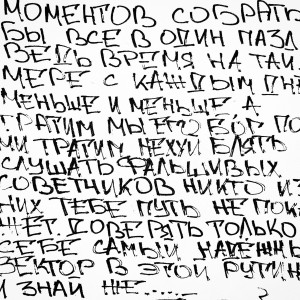 МОМЕНТОВ СОБРАТЬ
БЫ ВСЕ В ОДИН ПАЗЛ
ВЕДЬ ВРЕМЯ НА ТАЙ
МЕРЕ С КАЖДЫМ ДН
МЕНЬШЕ И МЕНЬШЕ А
ТРАТИМ МЫ ЕГО БОГ ПО
МИ ТРАТИМ НЕХУЙ БЛЯТЬ
СЛУШАТЬ ФАЛЬШИВЫХ
СОВЕТНИКОВ НИКТО ИЗ
НИХ ТЕБЕ ПУТЬ НЕ ПОК
ЖЕТ. ДОВЕРЯТЬ ТОЛЬКО
СЕБЕ САМЫЙ НАДЕЖНЫ
ВЕКТОР В ЭТОЙ РУТИН
И ЗНАЙ ЖЕ.....